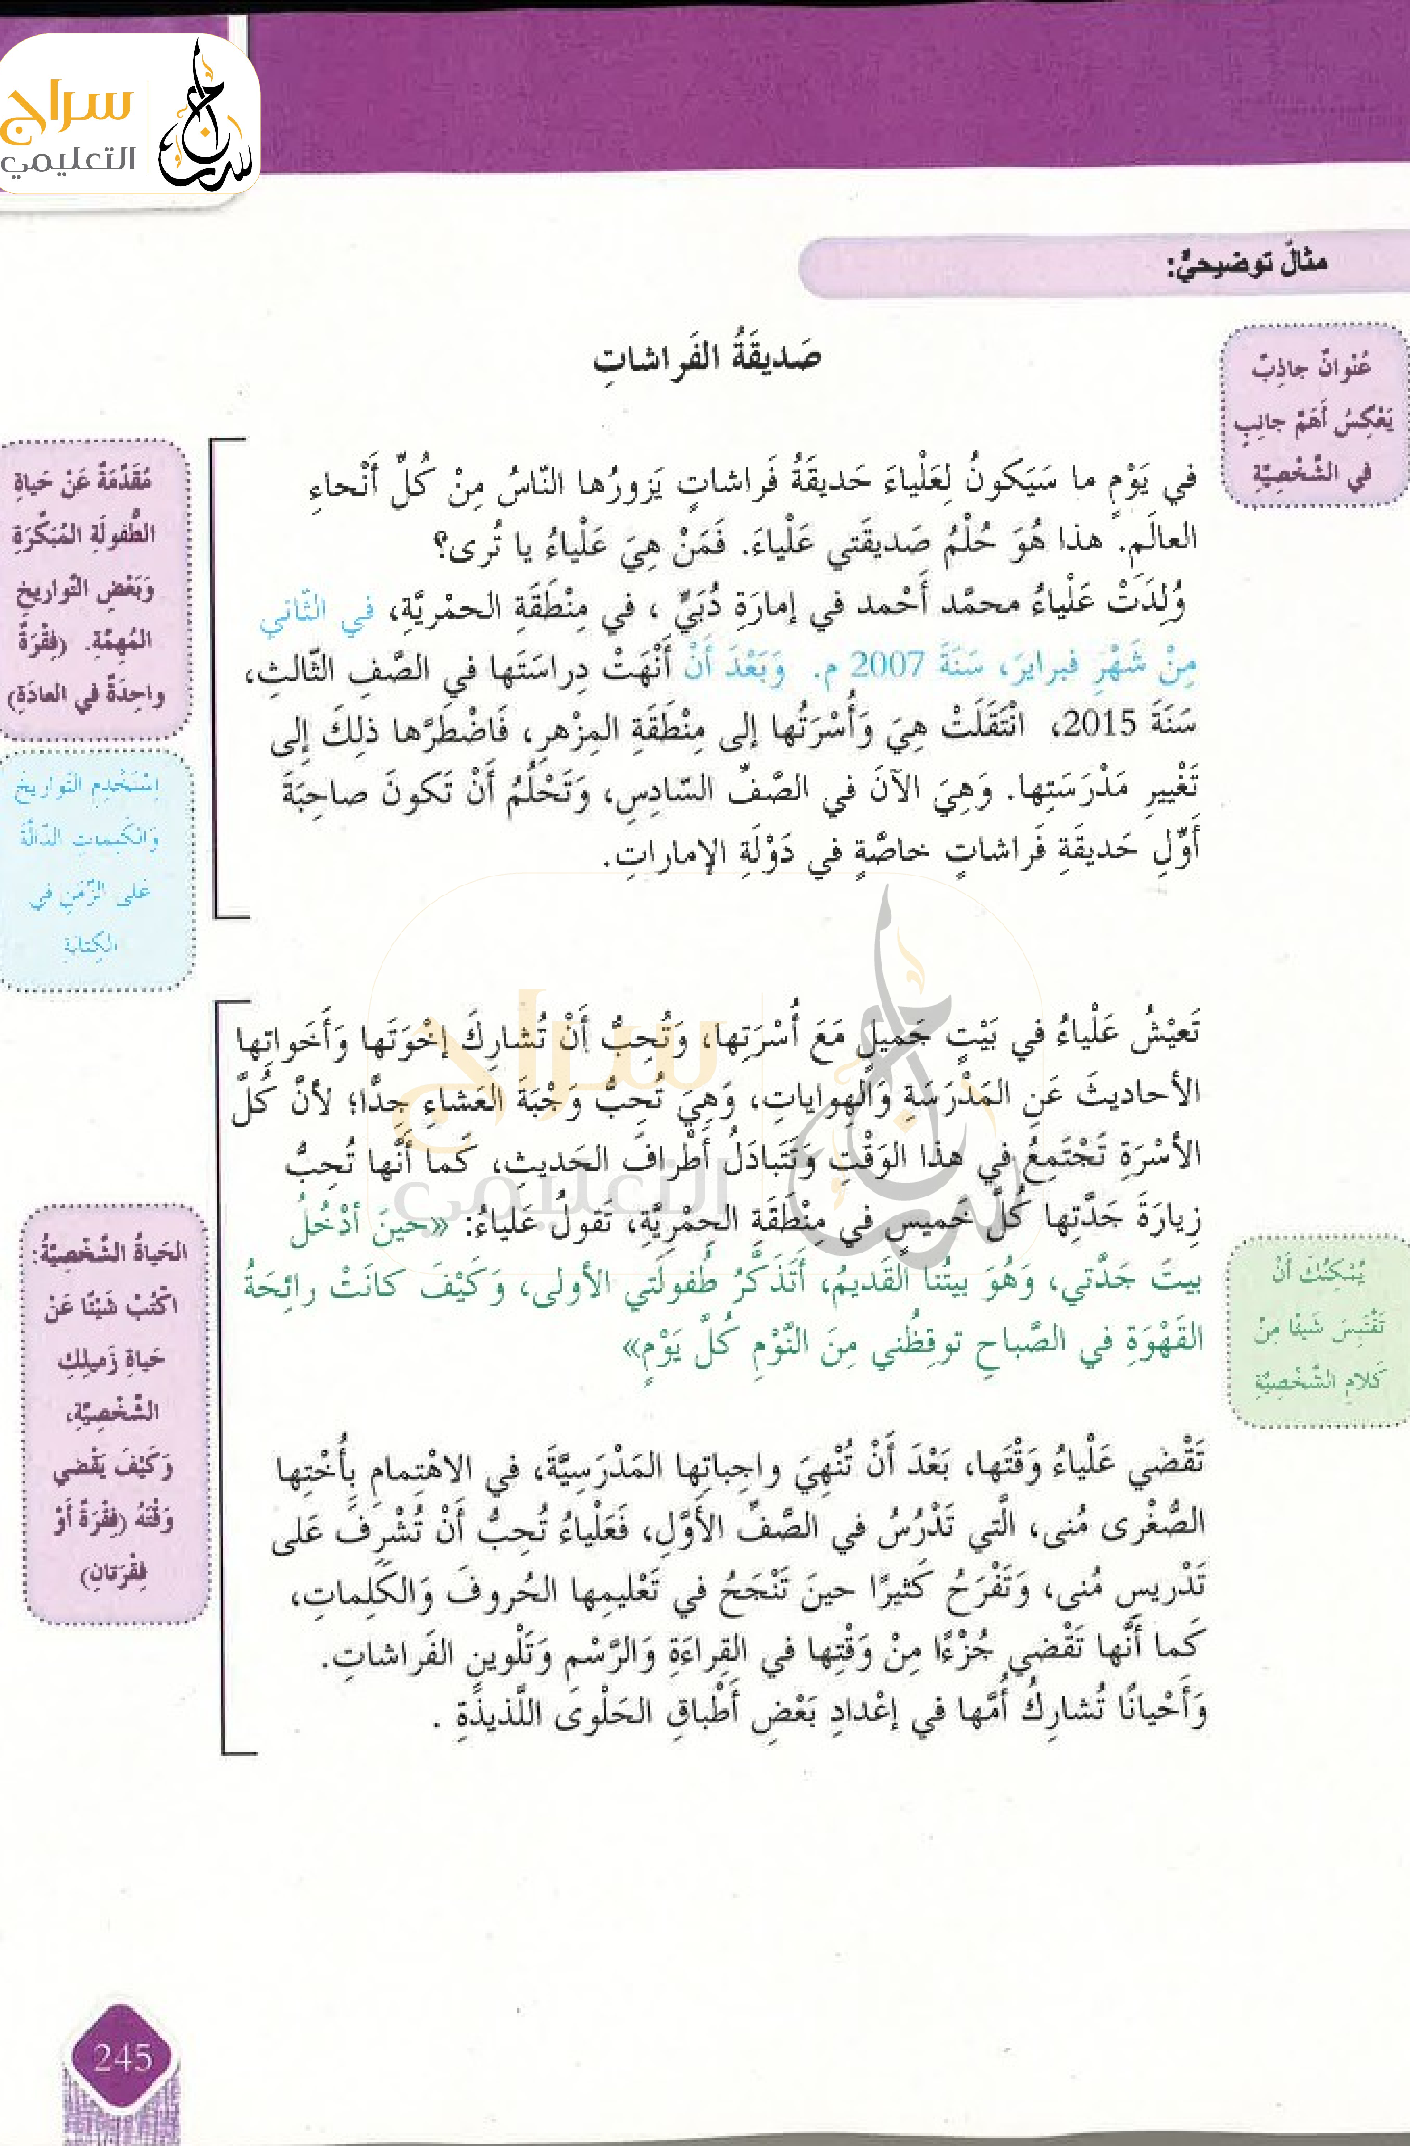 سراج
التعليمي
مثالٌ توضيحيٌّ:
صَديقَةُ الفَراشاتِ
عُنْوانٌ جاذِبٌ
يَعْكِسُ أَهَمَّ جانِبٍ
في الشَّخْصِيَّةِ
مُقَدِّمَةٌ عَنْ حَياةِ
الطُّفولَةِ المُبَكِّرَةِ
وَبَعْضِ التَّواريخِ
المُهِمَّةِ. (فِقْرَةٌ
واحِدَةٌ في العادَةِ)
في يَوْمٍ ما سَيَكونُ لِعَلْياءَ حَديقَةُ فَراشاتٍ يَزورُها النّاسُ مِنْ كُلِّ أَنْحاءِ
العالَمِ. هذا هُوَ حُلْمُ صَديقَتي عَلْياءَ. فَمَنْ هِيَ عَلْياءُ يا تُرى؟
وُلِدَتْ عَلْياءُ محمَّد أَحْمد في إمارَةِ دُبَيٍّ ، في مِنْطَقَةِ الحمْريَّةِ، في الثّاني
مِنْ شَهْرِ فبرايرَ، سَنَةَ 2007 م. وَبَعْدَ أَنْ أَنْهَتْ دِراسَتَها في الصَّفِ الثّالثِ،
سَنَةَ 2015، انْتَقَلَتْ هِيَ وَأُسْرَتُها إلى مِنْطَقَةِ المِزْهرِ، فَاضْطَرَّها ذلِكَ إلى
تَغْييرِ مَدْرَسَتِها. وَهِيَ الآنَ في الصَّفِّ السّادِسِ، وَتَحْلُمُ أَنْ تَكونَ صاحِبَةَ
أَوَّلِ حَديقَةِ فَراشاتٍ خاصَّةٍ في دَوْلَةِ الإماراتِ.
اِسْتَخْدِمِ التَّواريخَ
وَالكَلِماتِ الدّالَّةَ
عَلى الزَّمَنِ في
الكِتابَةِ
تَعيْشُ عَلْياءُ في بَيْتٍ جَميلٍ مَعَ أُسْرَتِها، وَتُحِبُّ أَنْ تُشارِكَ إخْوَتَها وَأَخَواتِها
الأحاديثَ عَنِ المَدْرَسَةِ وَالْهِواياتِ، وَهِيَ تُحِبُّ وَجْبَةَ العَشاءِ جِدًّا؛ لأنَّ كُلَّ
الأسْرَةِ تَجْتَمِعُ في هذا الوَقْتِ وَتَتَبادَلُ أَطْرافَ الحَديثِ، كَما أَنَّها تُحِبُّ
زِيارَةَ جَدَّتِها كُلَّ خَميسٍ في مِنْطَقَةِ الحِمْرِيَّةِ، تَقولُ عَلياءُ: «حينَ أدْخُلُ
بيتَ جَدَّتي، وَهُوَ بيتُنا القَديمُ، أَتَذَكَّرُ طُفولَتي الأولى، وَكَيْفَ كانَتْ رائِحَةُ
القَهْوَةِ في الصَّباحِ توقِظُني مِنَ النَّوْمِ كُلَّ يَوْمٍ»
يُمْكِنُكَ أَنْ
تَقْتَبِسَ شَيئًا مِنْ
كَلامِ الشَّخْصِيَّةِ
الحَياةُ الشَّخْصِيَّةُ:
اكْتُبْ شَيْئًا عَنْ
حَياةِ زَميلِكِ
الشَّخْصِيَّةِ،
وَكَيْفَ يَقْضي
وَقْتَهُ (فِقْرَةٌ أَوْ
فِقْرَتانِ)
تَقْضي عَلْياءُ وَقْتَها، بَعْدَ أَنْ تُنْهِيَ واجِباتِها المَدْرَسِيَّةَ، في الاهْتِمامِ بِأُخْتِها
الصُّغْرى مُنى، الَّتي تَدْرُسُ في الصَّفِّ الأوَّلِ، فَعَلْياءُ تُحِبُّ أَنْ تُشْرِفَ عَلى
تَدْريسِ مُنى، وَتَفْرَحُ كَثيرًا حينَ تَنْجَحُ في تَعْليمِها الحُروفَ وَالكَلِماتِ،
كَما أَنَّها تَقْضي جُزْءًا مِنْ وَقْتِها في القِراءَةِ وَالرَّسْمِ وَتَلْوينِ الفَراشاتِ.
وَأَحْيانًا تُشارِكُ أُمَّها في إعْدادِ بَعْضِ أَطْباقِ الحَلْوى اللَّذيذَةِ .
245